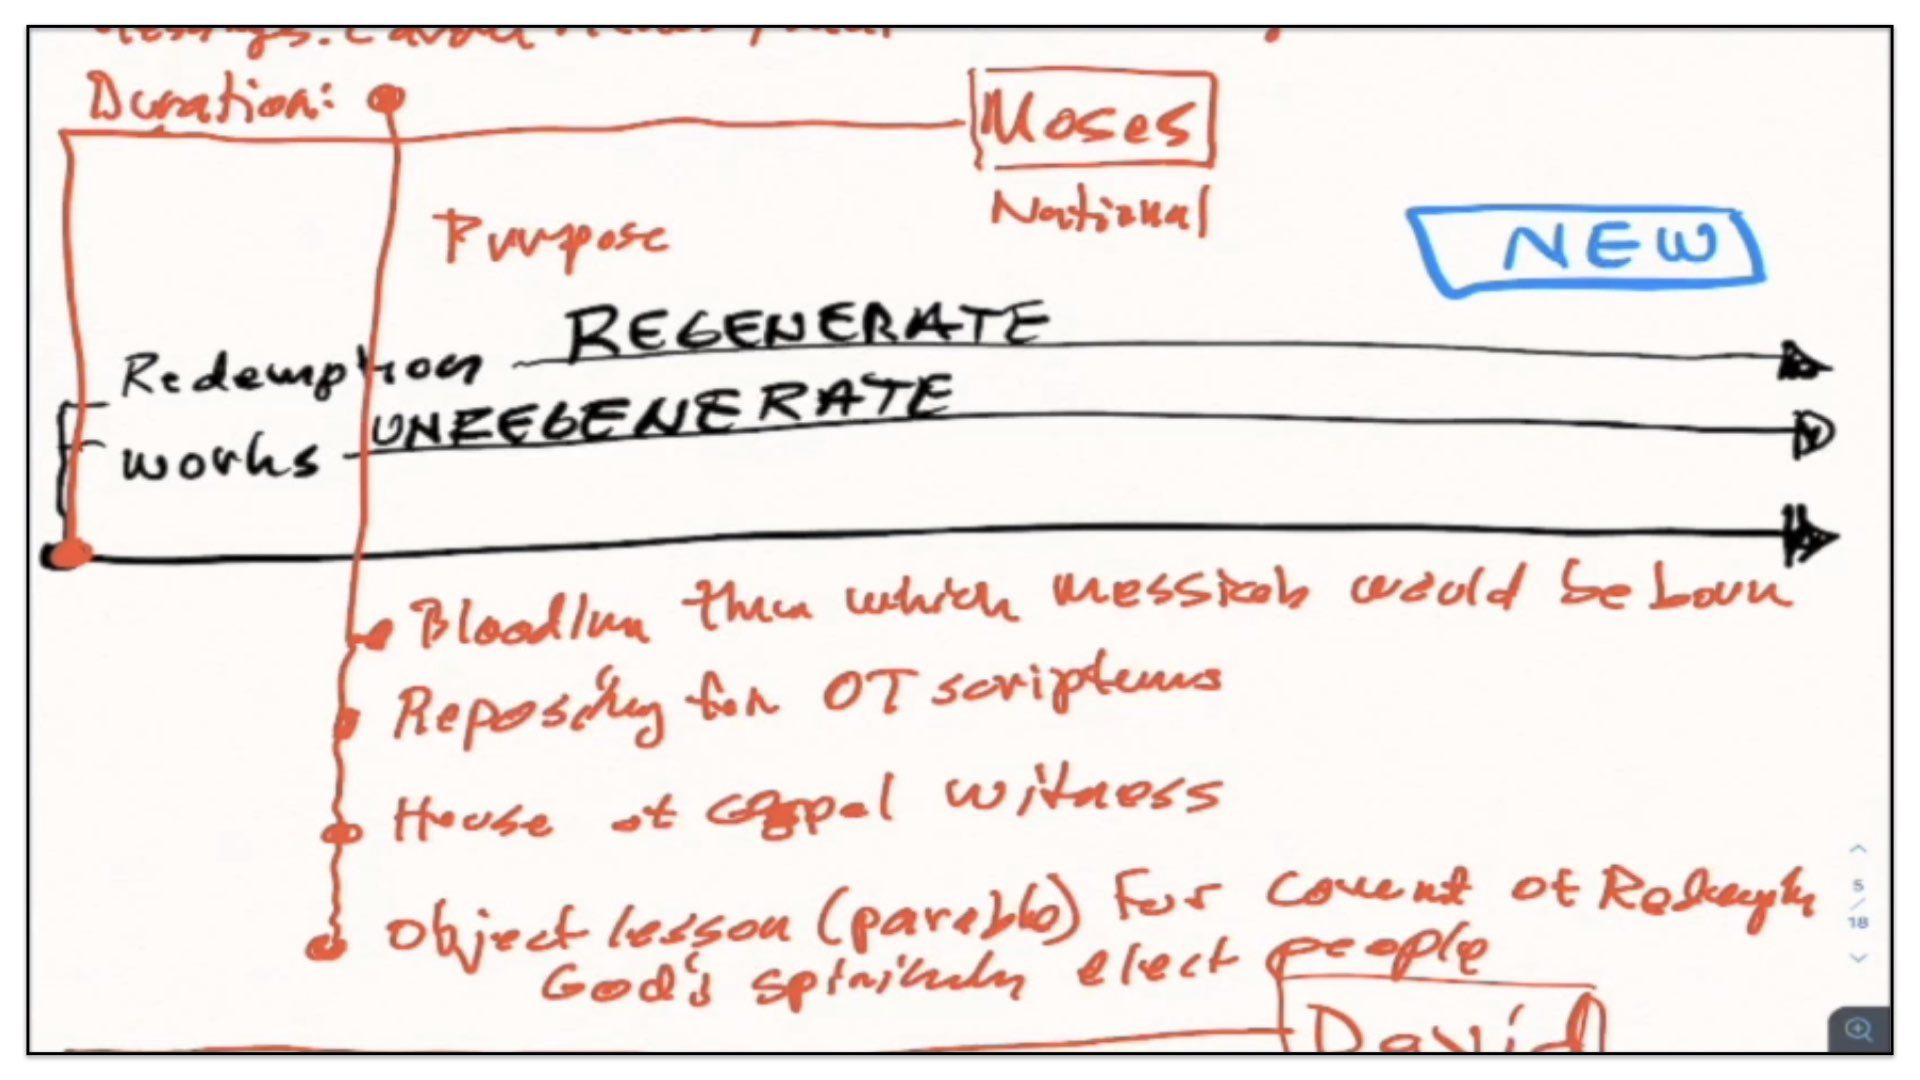 Duration:
Moses
National
Purpose
NEW
REGENERATE
Redemption
UNREGENERATE
works
Bloodline thru which messiah would be born
Repository for OT scriptures
House of Gospel witness
Object lesson (parable) For Covenant of Redemption
God's spiritually elect people
David
5
/
18